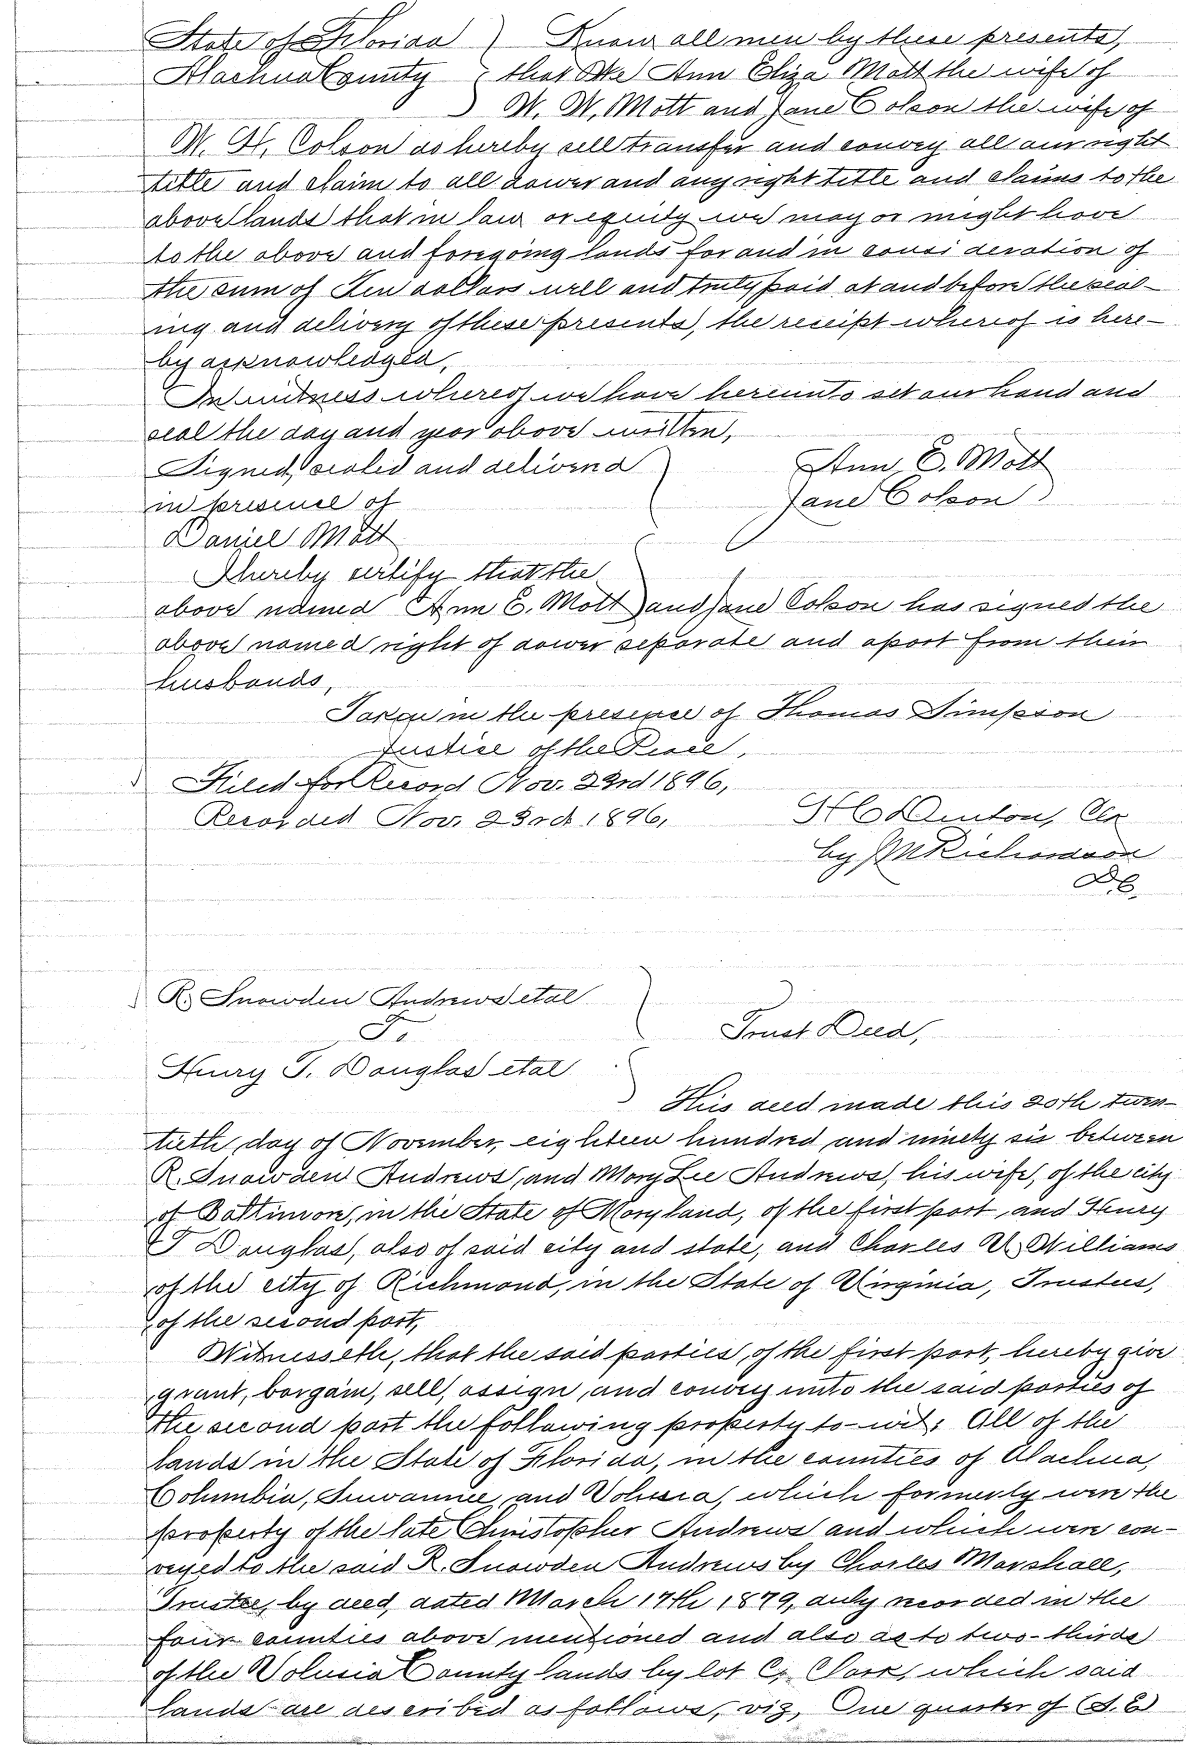 State of Florida ) Know all men by these presents,
Alachua County ) that We Ann Eliza Mott the wife of
W. W. Mott and Jane Colson the wife of
W. H. Colson do hereby sell transfer and convey all our right
title and claim to all dower and any right title and claims to the
above lands that in law or equity we may or might have
to the above and foregoing lands for and in consideration of
the sum of Ten dollars well and truly paid at and before the seal-
ing and delivery of these presents, the receipt whereof is here-
by acknowledged,
In witness whereof we have hereunto set our hand and
seal the day and year above written,
Signed, sealed and delivered ) Ann E. Mott
in presence of Jane Colson
Daniel Mott
I hereby certify that the
above named Ann E. Mott and Jane Colson has signed the
above named right of dower separate and apart from their
husbands,
Taken in the presence of Thomas Simpson
Justice of the Peace,
Filed for Record Nov. 23rd 1896,
Recorded Nov. 23rd 1896, H C Denton, Clk
by J M Richardson
D.C.
R. Snowden Andrews et al )
To Trust Deed,
Henry T. Douglas et al )
This deed made this 20th twen-
tieth day of November, eighteen hundred and ninety six between
R. Snowden Andrews, and Mary Lee Andrews, his wife, of the city
of Baltimore, in the State of Maryland, of the first part, and Henry
T Douglas, also of said city and state, and Charles U. Williams
of the city of Richmond, in the State of Virginia, Trustees,
of the second part,
Witnesseth, that the said parties of the first part, hereby give
grant, bargain, sell, assign, and convey unto the said parties of
the second part the following property to-wit; All of the
lands in the State of Florida, in the counties of Alachua,
Columbia, Suwannee, and Volusia, which formerly were the
property of the late Christopher Andrews and which were con-
veyed to the said R. Snowden Andrews by Charles Marshall,
Trustee, by deed, dated March 17th 1879, duly recorded in the
four counties above mentioned and also as to two-thirds
of the Volusia County lands by lot C, Clark, which said
lands are described as follows, viz, One quarter of (S. E)